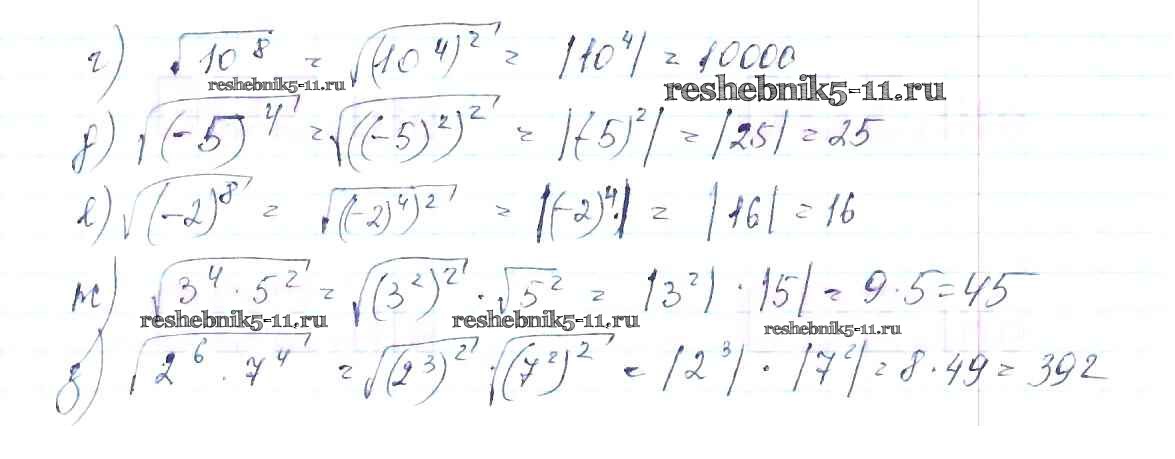 г) √10⁸ = √(10⁴)² = |10⁴| = 10000
reshebnik5-11.ru reshebnik5-11.ru
д) √(-5)⁴ = √((-5)²)² = |(-5)²| = |25| = 25
е) √(-2)⁸ = √((-2)⁴)² = |(-2)⁴| = |16| = 16
ж) √3⁴ · 5² = √(3²)² · √5² = |3²| · |5| = 9 · 5 = 45
reshebnik5-11.ru reshebnik5-11.ru reshebnik5-11.ru
з) √2⁶ · 7⁴ = √(2³)² · √(7²)² = |2³| · |7²| = 8 · 49 = 392